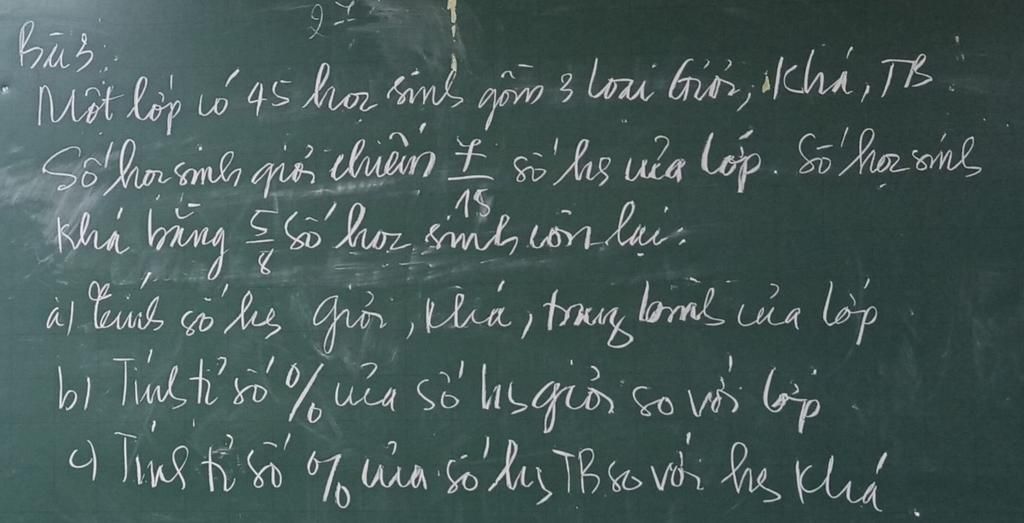 Bài 3:
Một lớp có 45 học sinh gồm 3 loại Giỏi, Khá, TB
Số học sinh giỏi chiếm 7/15 số hs của lớp. Số học sinh
khá bằng 5/8 số học sinh còn lại.
a) Tính số hs giỏi, khá, trung bình của lớp
b) Tính tỉ số % của số hs giỏi so với lớp
c) Tính tỉ số % của số hs TB so với hs khá